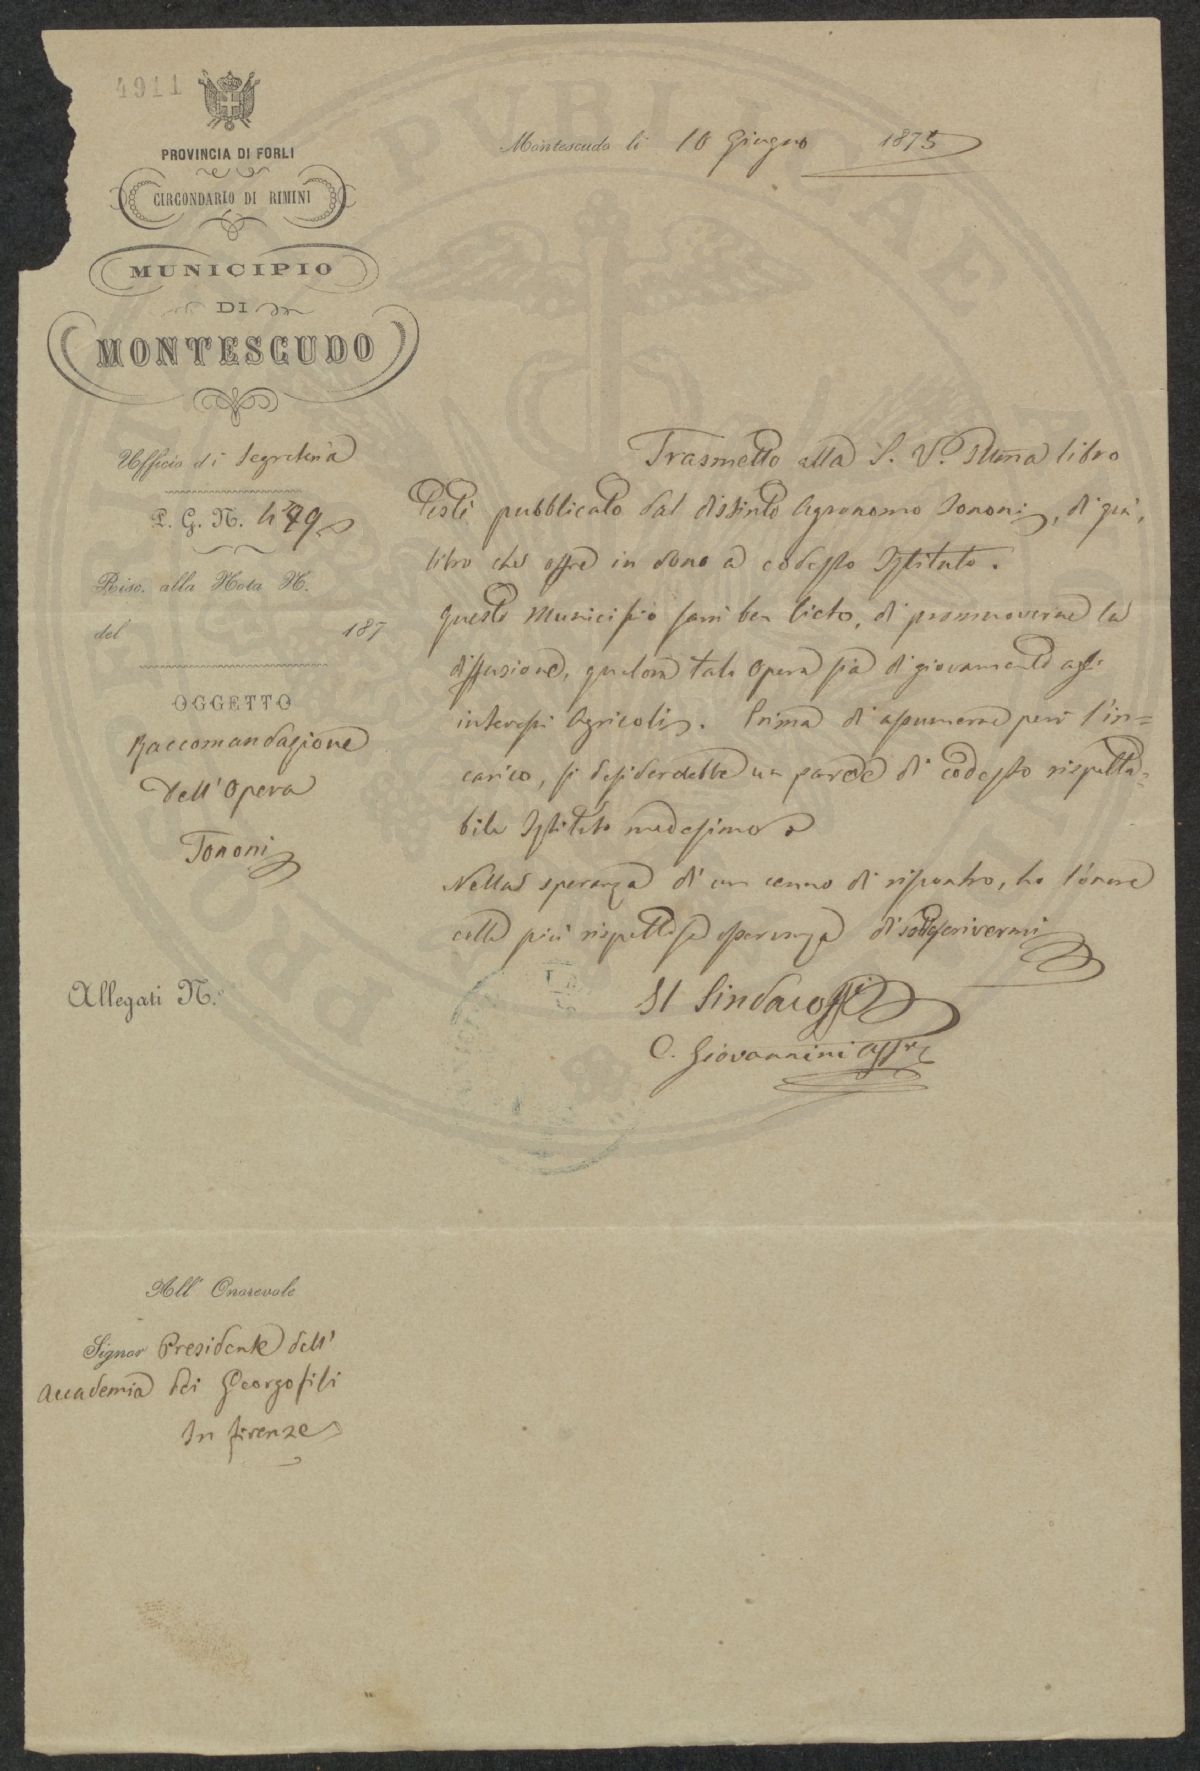 4911
PROVINCIA DI FORLI
CIRCONDARIO DI RIMINI
MUNICIPIO
DI
MONTESCUDO
Montescudo li 10 Giugno 1875
Ufficio di Segreteria
P. G. N. 499
Risc. alla Nota N.
del 187
OGGETTO
Raccomandazione
dell' Opera
Tononi
Allegati N.
Trasmetto alla S. V. Illma libro
testè pubblicato dal distinto Agronomo Tononi, di quì,
libro che offre in dono a codesto Istituto.
Questo Municipio sarà ben lieto, di promuoverne la
diffusione, qualora tale Opera sia di giovamento agli
interessi Agricoli. Prima di assumerne però l'in=
carico, si desiderebbe un parere di codesto rispetta=
bile Istituto medesimo
Nella speranza di un cenno di riscontro, ho l'onore
colla più rispettosa osservanza di sottoscrivermi
Il Sindaco
C. Giovannini
All' Onorevole
Signor Presidente dell'
Accademia dei Georgofili
In Firenze